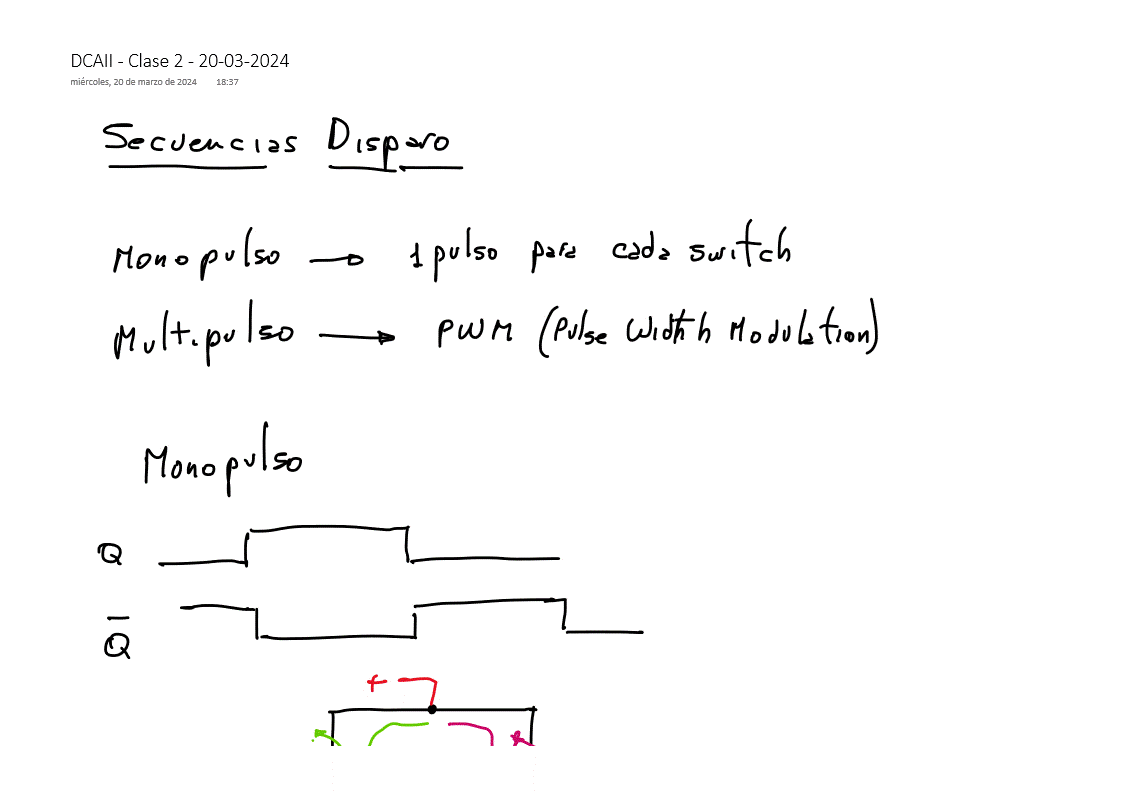 DCAII - Clase 2 - 20-03-2024
miércoles, 20 de marzo de 2024 18:37
Secuencias Disparo
Monopulso → 1 pulso para cada switch
Multipulso → PWM (Pulse Width Modulation)
Monopulso
Q
Q̅
+